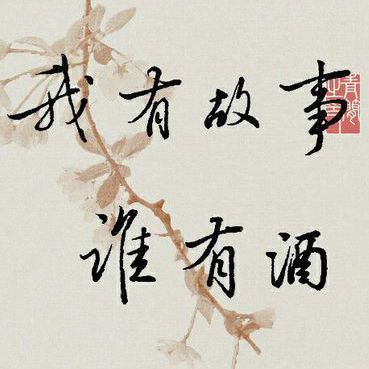 我有故事
谁有酒